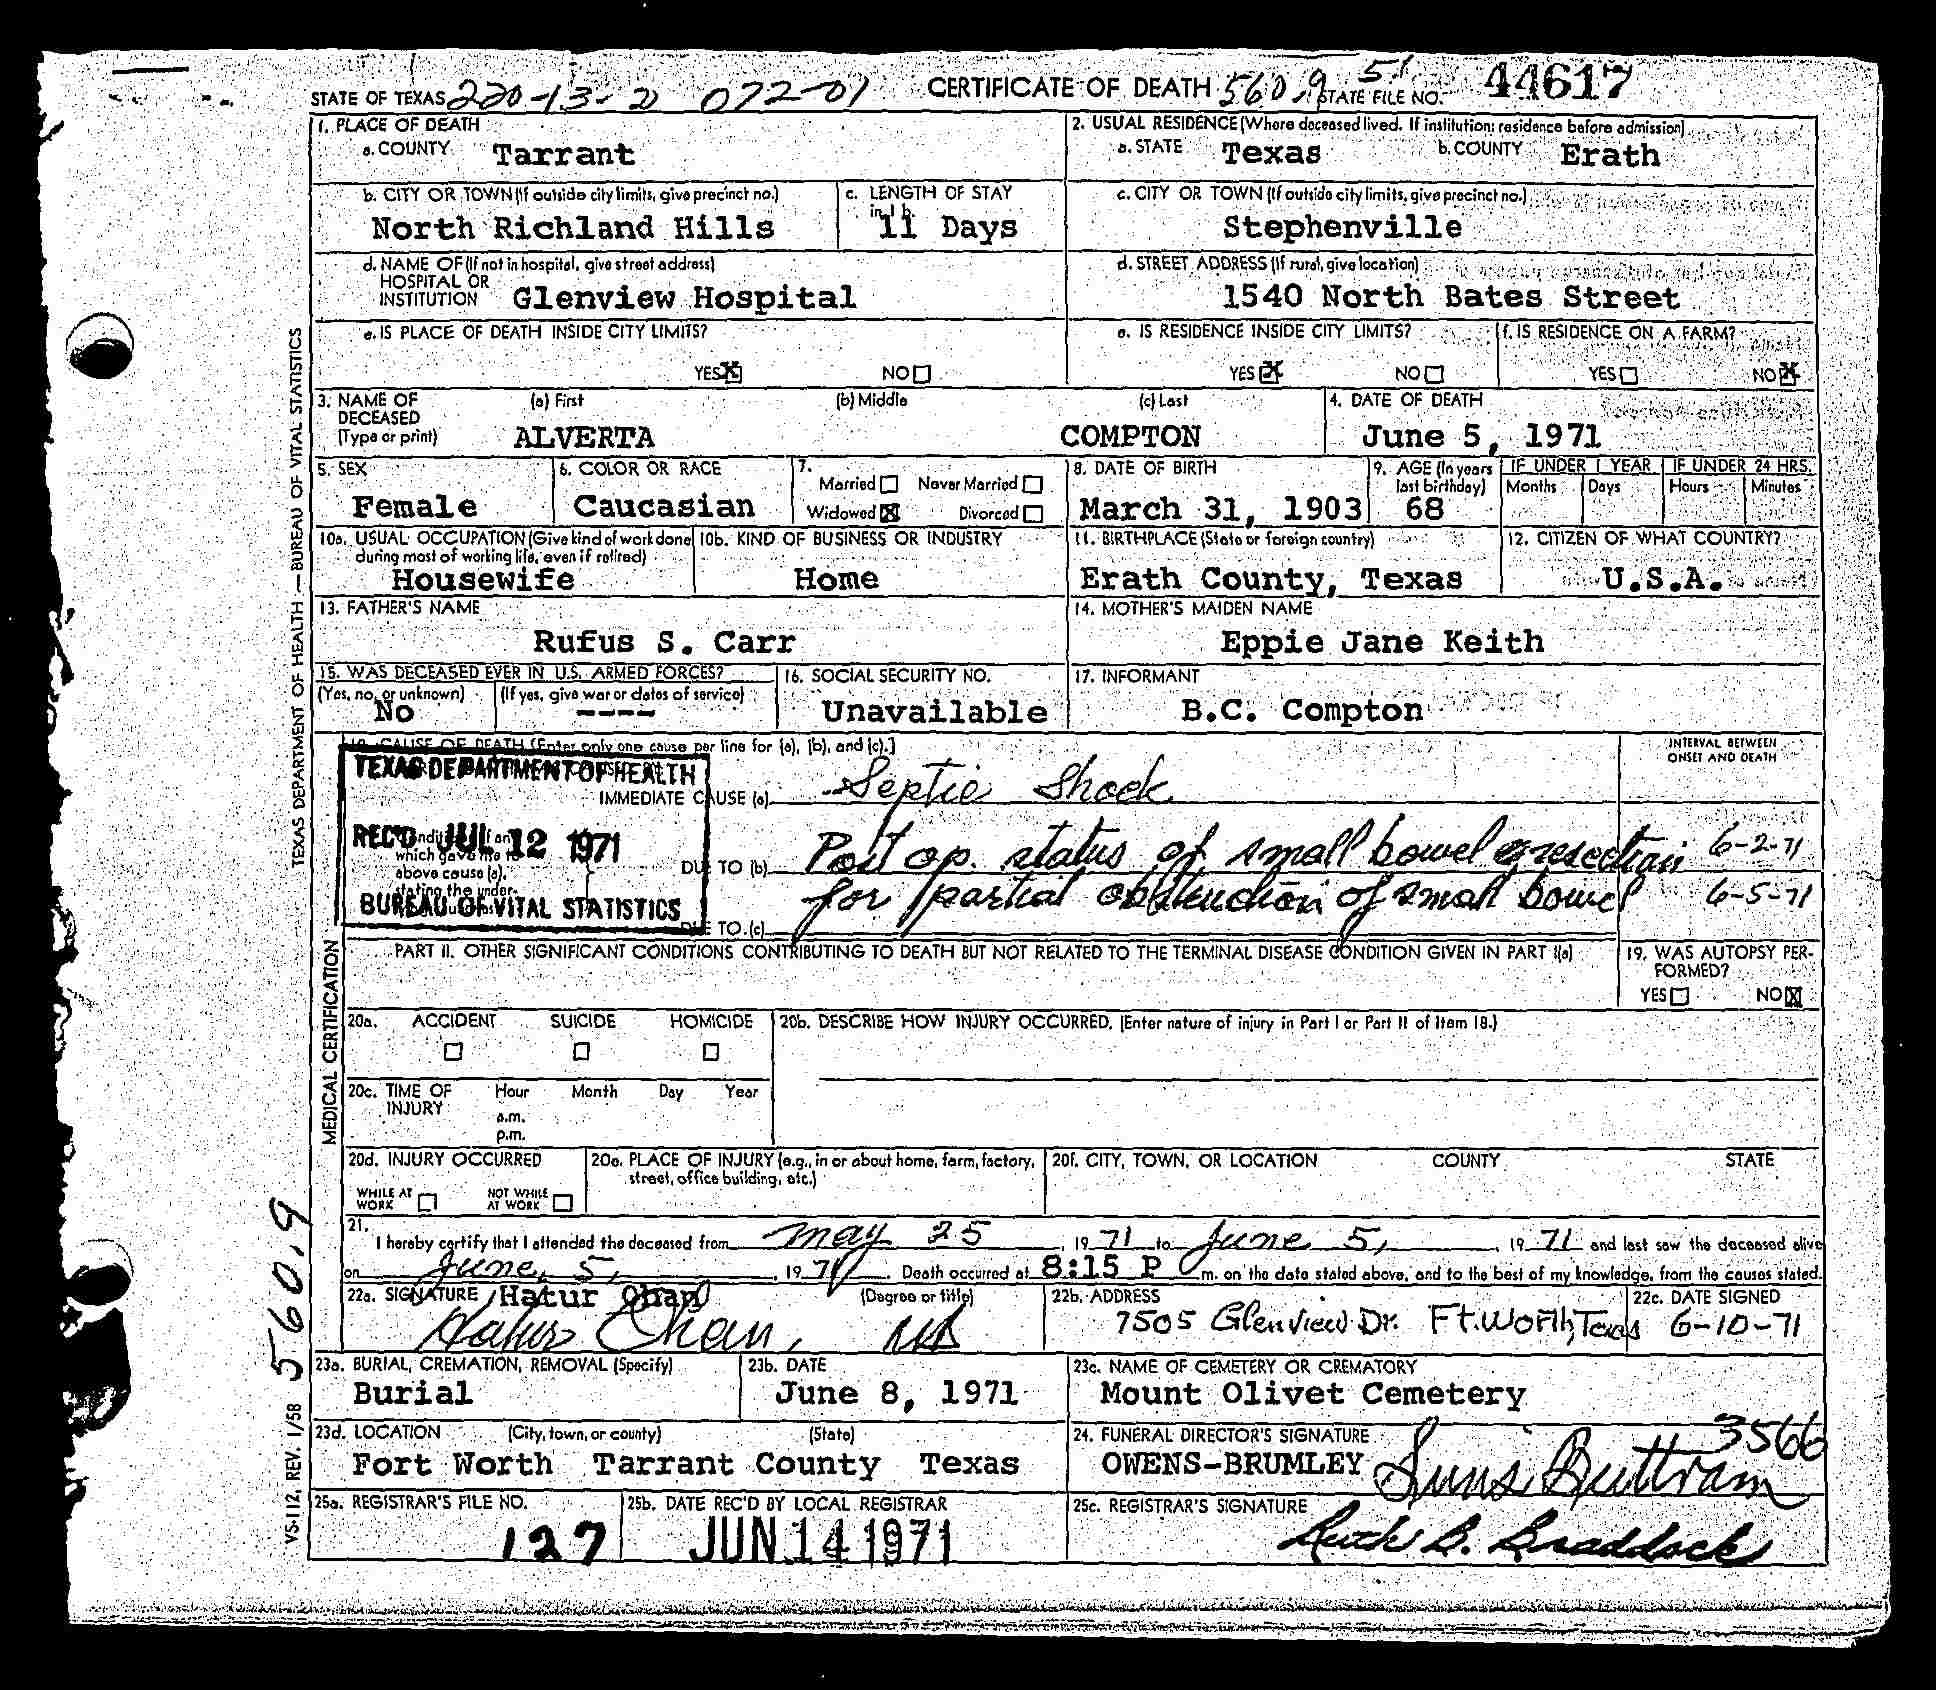 STATE OF TEXAS 220-13-2 072-01 CERTIFICATE OF DEATH 560.9 51 STATE FILE NO. 44617
1. PLACE OF DEATH
a. COUNTY Tarrant
2. USUAL RESIDENCE (Where deceased lived. If institution: residence before admission)
a. STATE Texas b. COUNTY Erath
b. CITY OR TOWN (If outside city limits, give precinct no.) c. LENGTH OF STAY in 1 b.
North Richland Hills 11 Days
c. CITY OR TOWN (If outside city limits, give precinct no.)
Stephenville
d. NAME OF (If not in hospital, give street address)
HOSPITAL OR
INSTITUTION Glenview Hospital
d. STREET ADDRESS (If rural, give location)
1540 North Bates Street
e. IS PLACE OF DEATH INSIDE CITY LIMITS?
YES NO
e. IS RESIDENCE INSIDE CITY LIMITS? f. IS RESIDENCE ON A FARM?
YES NO YES NO
3. NAME OF (a) First (b) Middle (c) Last 4. DATE OF DEATH
DECEASED
(Type or print) ALVERTA COMPTON June 5, 1971
5. SEX 6. COLOR OR RACE 7. 8. DATE OF BIRTH 9. AGE (In years last birthday) IF UNDER 1 YEAR IF UNDER 24 HRS.
Married Never Married Months Days Hours Minutes
Female Caucasian Widowed Divorced March 31, 1903 68
10a. USUAL OCCUPATION (Give kind of work done during most of working life, even if retired) 10b. KIND OF BUSINESS OR INDUSTRY 11. BIRTHPLACE (State or foreign country) 12. CITIZEN OF WHAT COUNTRY?
Housewife Home Erath County, Texas U.S.A.
13. FATHER'S NAME 14. MOTHER'S MAIDEN NAME
Rufus S. Carr Eppie Jane Keith
15. WAS DECEASED EVER IN U.S. ARMED FORCES? 16. SOCIAL SECURITY NO. 17. INFORMANT
(Yes, no, or unknown) (If yes, give war or dates of service)
No ---- Unavailable B.C. Compton
18. CAUSE OF DEATH (Enter only one cause per line for (a), (b), and (c).] INTERVAL BETWEEN ONSET AND DEATH
TEXAS DEPARTMENT OF HEALTH
IMMEDIATE CAUSE (a) Septic Shock
REC'D JUL 12 1971
which gave rise to
above cause (a),
stating the under-
DUE TO (b) Post op. status of small bowel resection 6-2-71
for partial obstruction of small bowel 6-5-71
BUREAU OF VITAL STATISTICS
DUE TO (c)
PART II. OTHER SIGNIFICANT CONDITIONS CONTRIBUTING TO DEATH BUT NOT RELATED TO THE TERMINAL DISEASE CONDITION GIVEN IN PART I(a) 19. WAS AUTOPSY PER-
FORMED?
YES NO
20a. ACCIDENT SUICIDE HOMICIDE 20b. DESCRIBE HOW INJURY OCCURRED. (Enter nature of injury in Part I or Part II of Item 18.)
20c. TIME OF INJURY Hour Month Day Year
a.m.
p.m.
20d. INJURY OCCURRED 20e. PLACE OF INJURY (e.g., in or about home, farm, factory, street, office building, etc.) 20f. CITY, TOWN, OR LOCATION COUNTY STATE
WHILE AT WORK NOT WHILE AT WORK
21.
I hereby certify that I attended the deceased from May 25, 1971 to June 5, 1971 and last saw the deceased alive
on June 5, 1971. Death occurred at 8:15 P m. on the date stated above, and to the best of my knowledge, from the causes stated.
22a. SIGNATURE Hatur Chan (Degree or title) 22b. ADDRESS 22c. DATE SIGNED
Hatur Chan, MD 7505 Glenview Dr. Ft. Worth, Texas 6-10-71
23a. BURIAL, CREMATION, REMOVAL (Specify) 23b. DATE 23c. NAME OF CEMETERY OR CREMATORY
Burial June 8, 1971 Mount Olivet Cemetery
23d. LOCATION (City, town, or county) (State) 24. FUNERAL DIRECTOR'S SIGNATURE 3566
Fort Worth Tarrant County Texas OWENS-BRUMLEY Buttram
25a. REGISTRAR'S FILE NO. 25b. DATE REC'D BY LOCAL REGISTRAR 25c. REGISTRAR'S SIGNATURE
127 JUN 14 1971 Ruth B. Braddock
TEXAS DEPARTMENT OF HEALTH — BUREAU OF VITAL STATISTICS
MEDICAL CERTIFICATION
560.9
VS-112, REV. 1/58